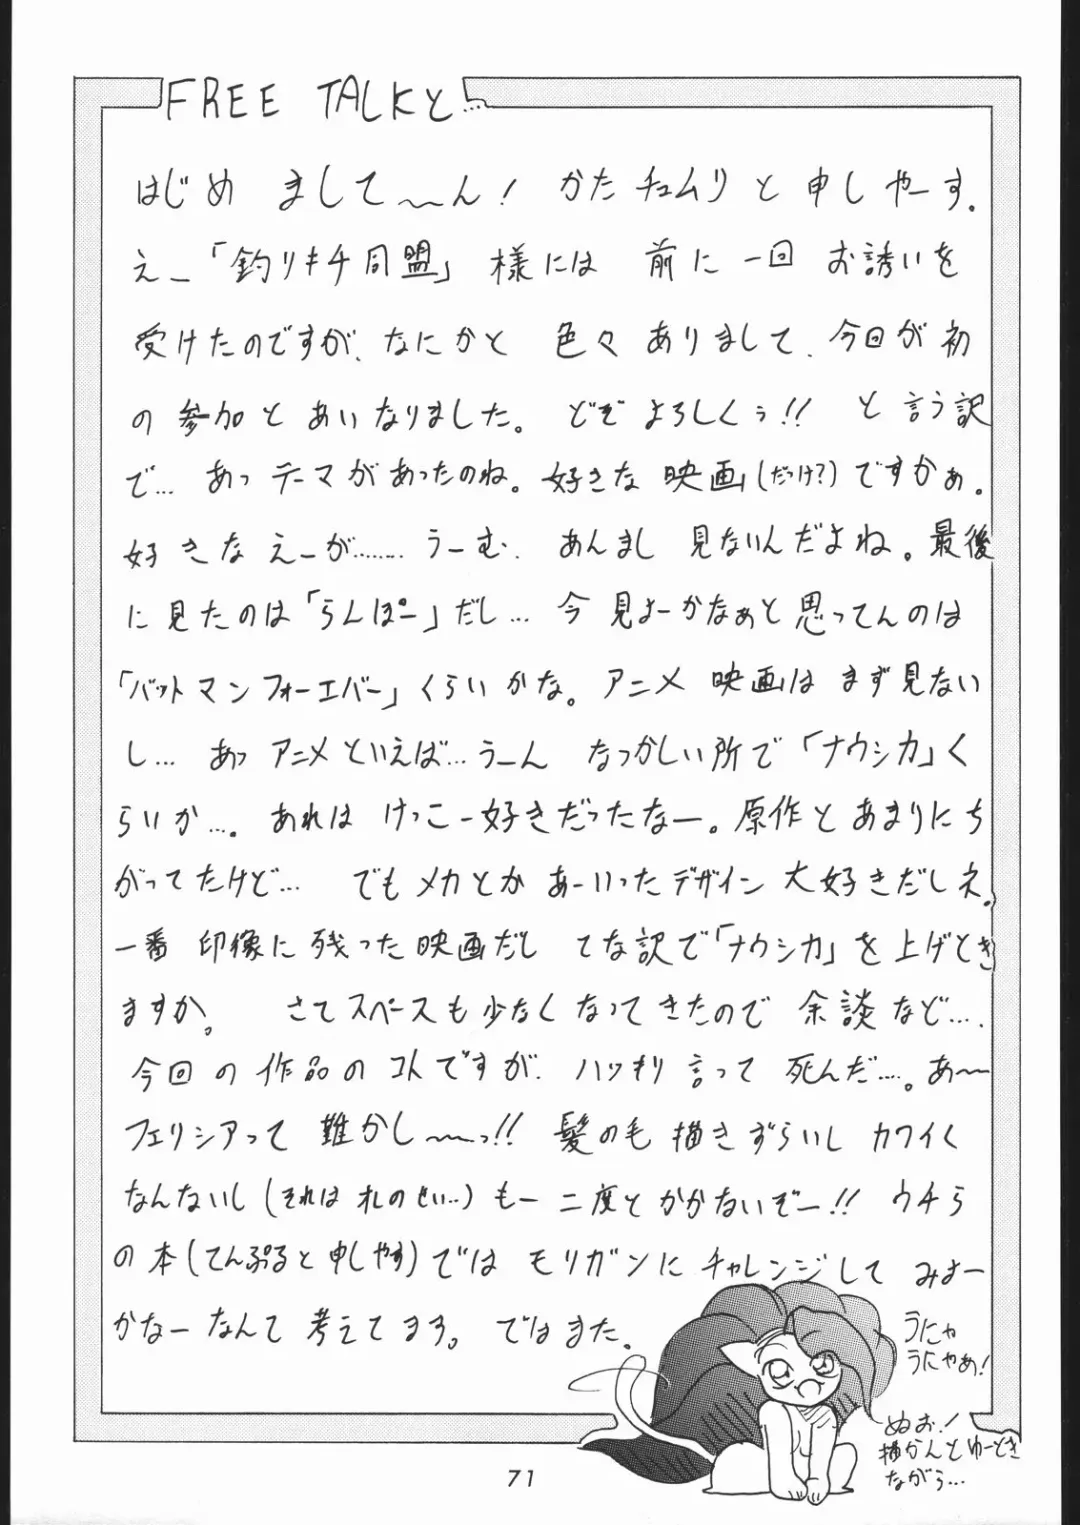 FREE TALKと…
はじめ まして〜ん! かたチュムリ と 申し やーす。
えー「釣りキチ同盟」様には 前に 一回 お誘いを
受けたのですが、なにかと 色々 ありまして、今回が初
の 参加と あいなりました。 どぞ よろしくぅ!! と言う訳
で… あっ テーマがあったのね。好きな 映画(だっけ?)ですかぁ。
好きな えーが……… うーむ、 あんまし 見ないんだよね。最後
に見たのは「らんぽー」だし… 今 見よーかなぁと思ってんのは
「バットマンフォーエバー」くらいかな。アニメ 映画は まず見ない
し… あっ アニメといえば…うーん なつかしい所で「ナウシカ」く
らいか…。 あれは けっこー好きだったなー。原作と あまりにち
がってたけど… でも メカとか あーいったデザイン 大好きだしネ。
一番 印像に残った映画だし てな訳で「ナウシカ」を上げとき
ますか。 さてスペースも少なくなってきたので 余談など…、
今回の作品のコトですが、ハッキリ言って 死んだ…。あ〜
フェリシアって 難かし〜〜っ!! 髪の毛 描きずらいし カワイく
なんないし(それはオレのせい…)もー二度とかかないぞー!! ウチら
の本(てんぷると申しやす)では モリガンにチャレンジして みよー
かなーなんて 考えてます。ではまた。
うにゃ
うにゃあ!
ぬお!
描かんとゆーとき
ながら…
71